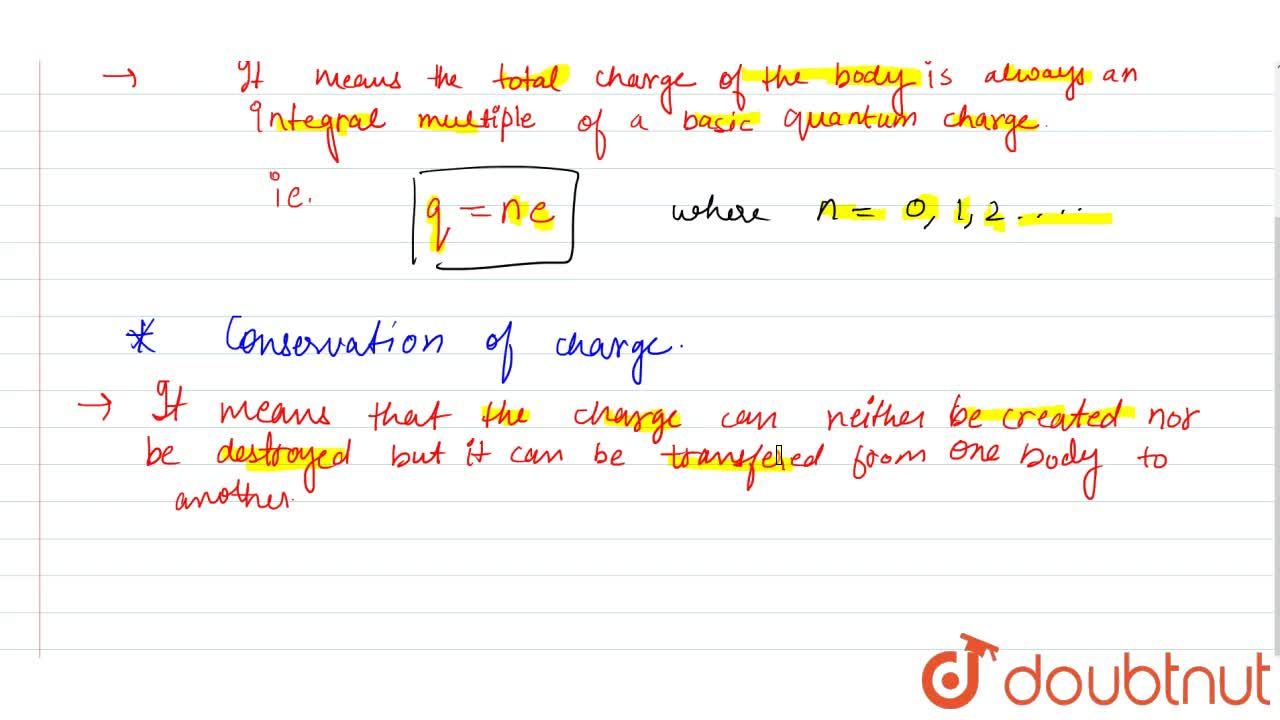 → It means the total charge of the body is always an
Integral multiple of a basic quantum charge.
ie. q = ne where n = 0, 1, 2 ....
* Conservation of charge.
→ It means that the charge can neither be created nor
be destroyed but it can be transfered from one body to
another.
doubtnut